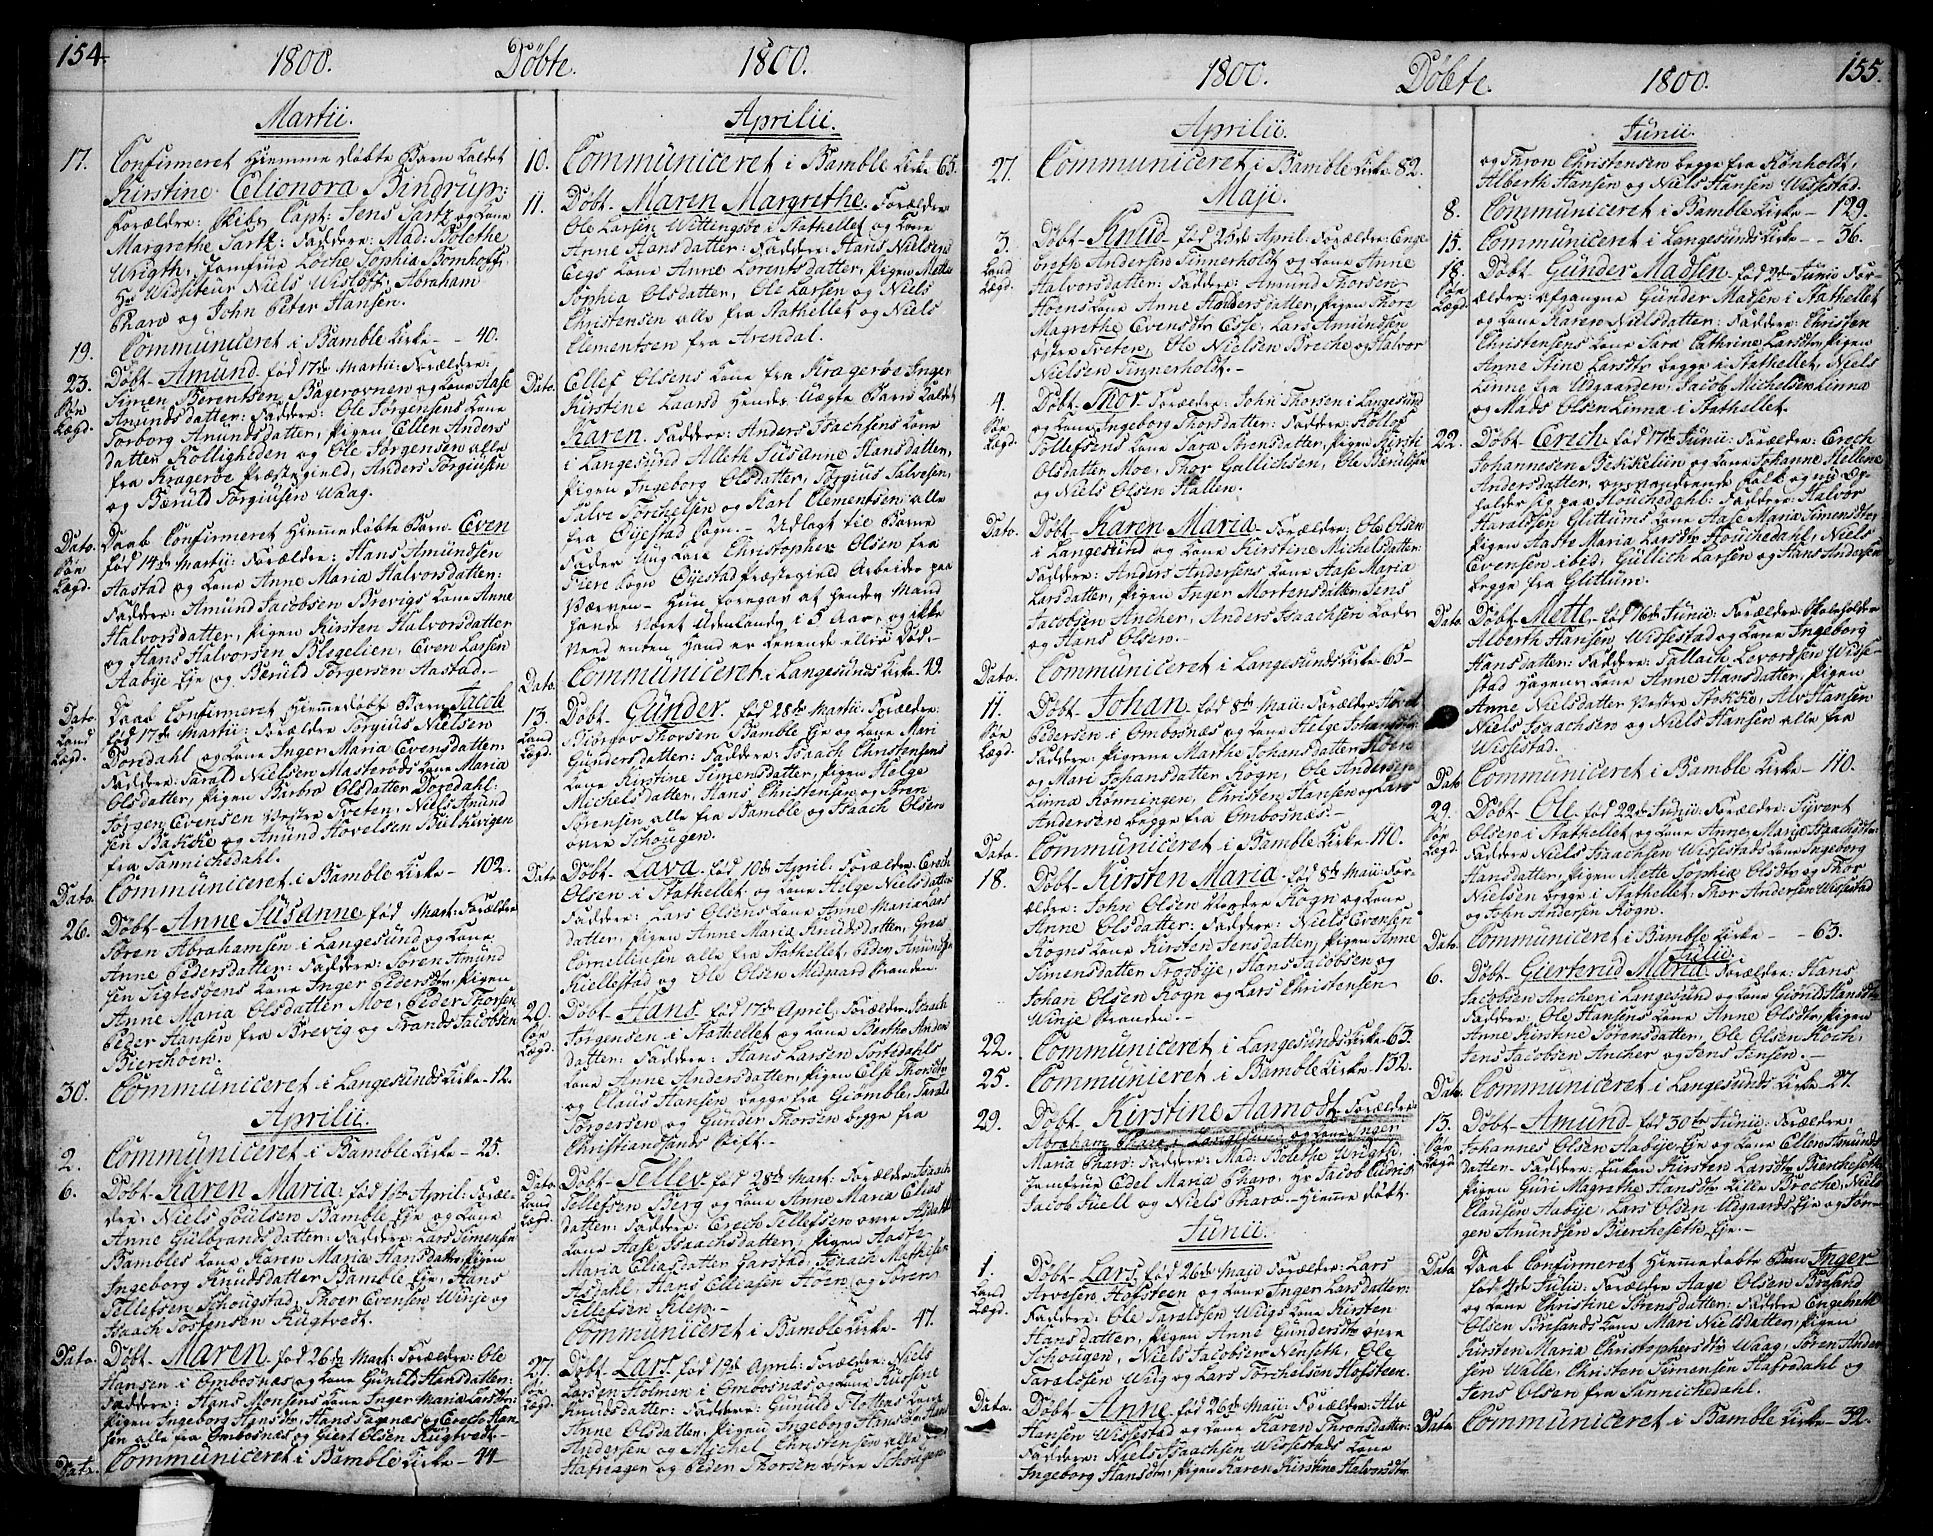 154. 1800. Döbte. 1800.
Martii.
17. Confirmeret Hiemme döbte Barn kaldet
Kirstine Elionora Bindrup:
Forældre: Skibs Capt: Jens Sartz og Kone
Margrethe Sartz: Faddere: Mad: Bolethe
Wrigth, Jomfrue Sophia Bomhoff,
Hr Widsiteur Niels Wislöff, Abraham
Pharo og John Peter Hansen.
19. Communiceret i Bamble Kirke - - 40.
23. Döbt Amund, föd 17de Martii: Forældre:
Simen Börentsen, Bagerovnen og Kone Aase
Amundsdatter: Faddere: Ole Jörgensens Kone
Torborg Amundsdatter, Pigen Ellen Anders
datter Kolligheden og Ole Jörgensen alle
fra Krageröe Præstegield, Anders Torgiusen
og Bæruld Torgiusen Waag.
Dato. Daab Confirmeret Hiemmedöbte Barn Even
föd 14de Martii: Forældre: Hans Amundsen
Aastad og Kone Anne Maria Halvorsdatter:
Faddere: Amund Jacobsen Brevigs Kone Anne
Halvorsdatter, Pigen Kirsten Halvorsdatter
og Hans Halvorsen Blegelien, Even Larsen
Aabye Eje og Bæruld Törgersen Aastad.
Dato Daab Confirmeret Hiemmedöbt Barn Jacob
föd 17de Martii: Forældre Torgius Nielsen
Dordahl og Kone Inger Maria Evensdatter:
Faddere: Tarald Nielsen Masteröds Kone Maria
Olsdatter, Pigen Barbro Olsdatter Dordahl:
Jörgen Evensen Vestre Tveten, Niels Amund
sen Bakke og Amund Hovelsen Bielkevigen
fra Sannichedahl.
Dato. Communiceret i Bamble Kirke - 102.
26. Döbt Anne Susanne föd Mart: Forældre
Sören Abrahamsen i Langesund og Kone
Anne Pedersdatter: Faddere: Sören Amund
sen Kone Inger Pedersdtr, Pigen
Anne Maria Olsdatter Moe, Peder Thorsen,
Peder Hansen fra Brevig og Trands Jacobsen
Bierchoen.
30. Communiceret i Langesunds Kirke - 12.
Aprilii.
2. Communiceret i Bamble Kirke - 25.
6. Döbt Karen Maria, föd 1ste April: Foræl-
dre: Niels Poulsen Bamble Eje og Kone
Anne Gulbrandsdatter: Faddere: Lars Simensen
Bambles Kone Karen Maria Hansdatter, Pigen
Ingeborg Knudsdatter Bamble Eje, Hans
Tellefsen Schougstad, Thoer Evensen Winje og
Isaach Tostensen Rugtvedt.
Dato. Döbt Maren föd 26de Mart: Forældre: Ole
Hansen i Ombosnæs og Kone Gunild Hansdatter:
Faddere: Hans Monsens Kone Inger Maria Larsdtr:
Pigen Ingeborg Hansdtr, Hans og Erech Han-
sen alle fra Ombosnæs og Giert Olsen Rugtvedt.
Dato. Communiceret i Bamble Kirke - 44
Aprilii.
10. Communiceret i Bamble Kirke 65.
11. Döbt Maren Margrethe. Forældre
Ole Larsen Wittingsöe i Stathellet og Kone
Anne Hansdatter: Faddere: Hans Nielsens
Eegs Kone Anne Lorentsdatter, Pigen Mette
Sophia Olsdatter, Ole Larsen og Niels
Christensen alle fra Stathellet og Niels
Clementsen fra Arendal.
Dato. Ellef Olsens Kone fra Krageröe Inger
Kirstine Laarsd Hendes Uægte Barn kaldet
Karen. Faddere: Anders Isachsens Kone
i Langesund Alleth Susanne Hansdatter,
Pigen Ingeborg Olsdatter, Torgius Salvesen,
Salve Torchelsen og Karl Clementsen alle
fra Öyestad Sogn. - Udlagt til Barne
Fader Ung Karl Christopher Olsen fra
Fiere Sogn Öyestad Præstegield Arbeider paa
Værven - Hun foregav at hendes Mand
havde Været Udenlands i 3 Aar, og ikke
Veed enten Hand er levende eller Död.
Dato. Communiceret i Langesunds Kirke - 49.
13. Döbt Gunder. föd 28de Martii: Forældre:
Torgov Thorsen Bamble Eje og Kone Mari
Gundersdatter: Faddere: Isaach Christensens
Kone Kirstine Simensdatter, Pigen Helge
Michelsdatter, Hans Christensen og Sören
Sörensen alle fra Bamble og Isaach Olsen
övre Schougen.
Dato Döbt Lava. föd 10de April: Forældre: Erech
Olsen i Stathellet og Kone Helge Nielsdatter
Faddere: Lars Olsens Kone Anne Maria Lars
datter, Pigen Anne Maria Knudsdatter, Gros
Cornelliusen alle fra Stathellet, Peder Amundsen
Kiellestad og Ole Olsen Midgaard Stranden.
20. Döbt Hans. föd 17de April: Forældre: Isaach
Jörgensen i Stathellet og Kone Berthe Anders
datter: Faddere: Hans Larsen Tordahls
Kone Anne Andersdatter, Pigen Else Thorsdtr
og Claus Hansen begge fra Giömble, Tarald
Torgersen og Gunder Thorsen begge fra
Christiansands Stift.
Dato Döbt Tellev föd 28de Mart: Forældre: Isaach
Tellefsen Berg og Kone Anne Maria Elias
datter: Faddere: Erech Tellefsen övre Alsdahls
Kone Aase Isaachsdatter, Pigen Aaste
Maria Eliasdatter Garstad, Isaach Mathisen
Alsdahl, Hans Elliasen Hoen og Sören
Tellefsen Klep.
Communiceret i Bamble Kirke - 47.
27. Döbt Lars föd 19de April: Forældre: Niels
Larsen Holmen i Ombosnæs og Kone
Knudsdatter: Faddere: Gunuld Kone
Anne Olsdatter, Pigen Ingeborg Hansdtr, Hans
Andersen og Michel Christensen alle fra
Hafsagen og Peder Thorsen övre Schougen.
1800. Döbte. 1800. 155.
Aprilii.
27. Communiceret i Bamble Kirke 82.
Maji.
3. Döbt Knud föd 25de April: Forældre: Enge
breth Andersen Tinnerholt og Kone Anne
Halvorsdatter: Faddere: Amund Thorsen
Hoens Kone Anne Handersdatter, Pigen Thore
Magrethe Evensdtr Esse, Lars Amundsen
östre Tveten, Ole Nielsen Breche og Halvor
Nielsen Tinnerholt.
4. Döbt Thor. Forældre: John Thorsen i Langesund
og Kone Ingeborg Thorsdatter: Faddere: Rollof
Tollefsens Kone Sara Börensdatter, Pigen Kirsti
Olsdatter Moe, Thor Gullichsen, Ole Bærulsen
og Niels Olsen Hallen.
Dato. Döbt Karen Maria. Forældre: Ole Olsen
i Langesund og Kone Kirstine Michelsdatter:
Faddere: Anders Andersens Kone Aase Maria
Larsdatter, Pigen Inger Mortensdatter, Jens
Jacobsen Ancher, Anders Isaachsen
og Hans Olsen.
Dato. Communiceret i Langesunds Kirke 65 -
11. Döbt Johan. föd 8de Maii: Forældre:
Pedersen i Ombosnæs og Kone Helge Johansdtr:
Faddere: Pigerne Marthe Johansdatter Hoen
og Mari Johansdatter Rogn, Ole Andersen
Linnæ Rönningen, Christen Hansen og Lars
Andersen begge fra Ombosnæs.
Dato. Communiceret i Bamble Kirke 110.
18. Döbt Kirsten Maria föd 8de Maii: For-
ældre: John Olsen Nordre Rogn og Kone
Anne Olsdatter: Faddere: Niels Evensen
Rogns Kone Kirsten Jensdatter, Pigen Anne
Simensdatter Trosbye, Hans Jacobsen og
Johan Olsen Rogn og Lars Christensen
Winje Stranden.
22. Communiceret i Langesunds Kirke 63.
25. Communiceret i Bamble Kirke - 132.
29. Döbt Kirstine Aamodt. Forældre:
Abraham Pharo, Langesund og Kone Inger
Maria Pharo: Faddere: Mad: Bolethe Wrigth,
Jomfrue Edel Maria Pharo, Hr Jacob
Jacob Juell og Niels Pharo - Hiemme döbt.
Junii.
1. Döbt Lars föd 26de Maji Forældre: Lars
Arvesen Hofsteen og Inger Larsdatter:
Faddere: Ole Taraldsen Widigs Kone Kirsten
Hansdatter, Pigen Anne Gundersdtr övre
Schougen, Niels Jacobsen Nenseth, Ole
Taralsen Widig og Lars Torchelsen Hofsteen.
Dato. Döbt Anne föd 26de Maii: Forældre: Alv
Hansen Wissestad og Kone Karen Thronsdatter:
Faddere: Niels Isaachsen Wissestads Kone
Ingeborg Hansdtr, Pigen Karen Kirstine Halvorsdtr
Junii.
og Thron Christensen begge fra Rönholt,
Alberth Hansen og Niels Hansen Wissestad.
8. Communiceret i Bamble Kirke - 129.
15. Communiceret i Langesunds Kirke - - 36.
18. Döbt Günder Madsen föd 9de Junii For-
ældre: Afgangne Günder Madsen i Stathellet
og Kone Karen Nielsdatter: Faddere: Christen
Christensens Kone Sara Cathrine Larsdtr, Pigen
Anne Stine Larsdtr begge i Stathellet, Niels
Linne fra Udgaarden, Jacob Michelsen Linna
og Mads Olsen Linna i Stathellet.
22. Döbt Erech föd 17de Junii: Forældre: Erech
Johannesen Bekkeliin og Kone Johanne Hellene
Andersdatter, omvandrende Folk og nu Op-
holder sig paa Houchedahl: Faddere: Halvor
Haraldsen Glittums Kone Aase Maria Simensdtr,
Pigen Aaste Maria Larsdtr Houchedahl, Niels
Evensen ibid, Gullich Larsen og Hans Andersen
begge fra Glittum.
Dato. Döbt Mette. föd 16de Junii: Forældre: Skoleholder
Alberth Hansen Widsestad og Kone Ingeborg
Hansdatter: Faddere: Tallach Lovordsen Widse-
stad Hagens Kone Anne Hansdatter, Pigen
Anne Nielsdatter Vestre Stokke, Alv Hansen
Niels Isaachsen og Niels Hansen alle fra
Wissestad.
Dato Communiceret i Bamble Kirke - 110.
29. Döbt Ole föd 22de Junii: Forældre: Syvert
Olsen i Stathellet og Kone Anne Maria Isaachsdtr:
Faddere Niels Isaachsen Wissestads Kone Ingeborg
Hansdatter, Pigen Mette Sophia Olsdtr og Thor
Nielsen begge i Stathellet, Thor Andersen Wissestad
og John Andersen Rogn.
Dato. Communiceret i Bamble Kirke - - 63.
Julii.
6. Döbt Gierterud Maria. Forældre: Hans
Jacobsen Ancher i Langesund og Kone Giönd Hansdtr
Faddere: Ole Hansens Kone Anne Olsdtr, Pigen
Anne Kirstine Sörensdatter, Ole Olsen Koch,
Jens Jacobsen Ancher og Jens Jensen.
Dato. Communiceret i Langesunds Kirke 27.
13. Döbt Amund föd 30te Junii: Forældre,
Johannes Olsen Aabye Eje og Kone Ellen Amunds
datter: Faddere: Enken Kirsten Larsdtr Bierchesette
Pigen Guri Magrethe Hansdtr Lille Broche, Niels
Clausen Aabye, Lars Olsen Udgaards Eje og Jör-
gen Amundsen Biercheseth Eje.
Dato Daab Confirmeret Hiemmedöbte Barn Inger
föd Julii: Forældre Aage Olsen Börsund
og Kone Christine Börensdatter: Faddere Engebreth
Olsen Börsunds Kone Mari Nielsdatter, Pigen
Kirsten Maria Christophersdtr Waag, Sören Ander
sen Walle, Christen Simensen Hafsdahl og
Jens Olsen fra Sannichedahl.
Dato. Communiceret i Bamble Kirke - 32.